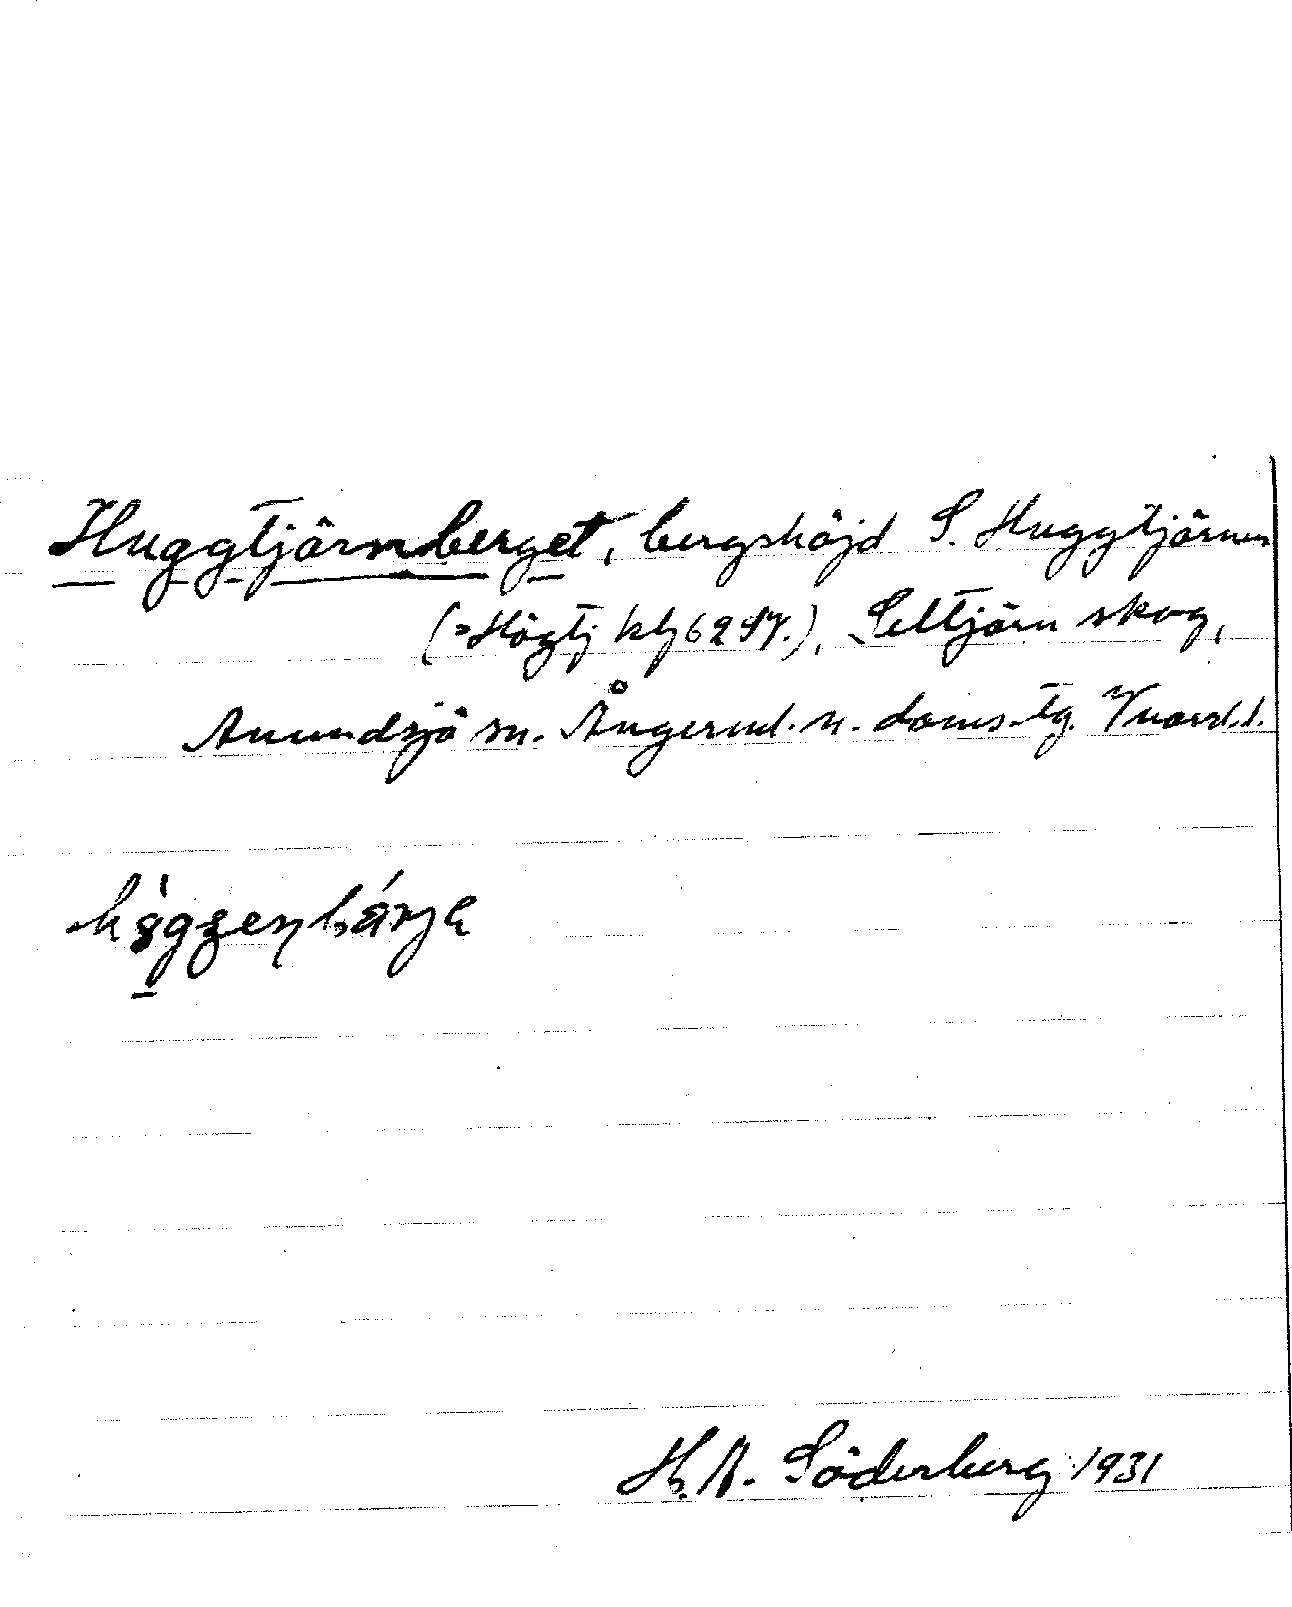 Huggtjärnberget, bergshöjd S. Huggtjärnen
(=Högtj kbl 62 SV.), Seltjärn skog,
Anundsjö sn. Ångerml. n. doms.tg. Vnorrl. l.
H. A. Söderberg 1931